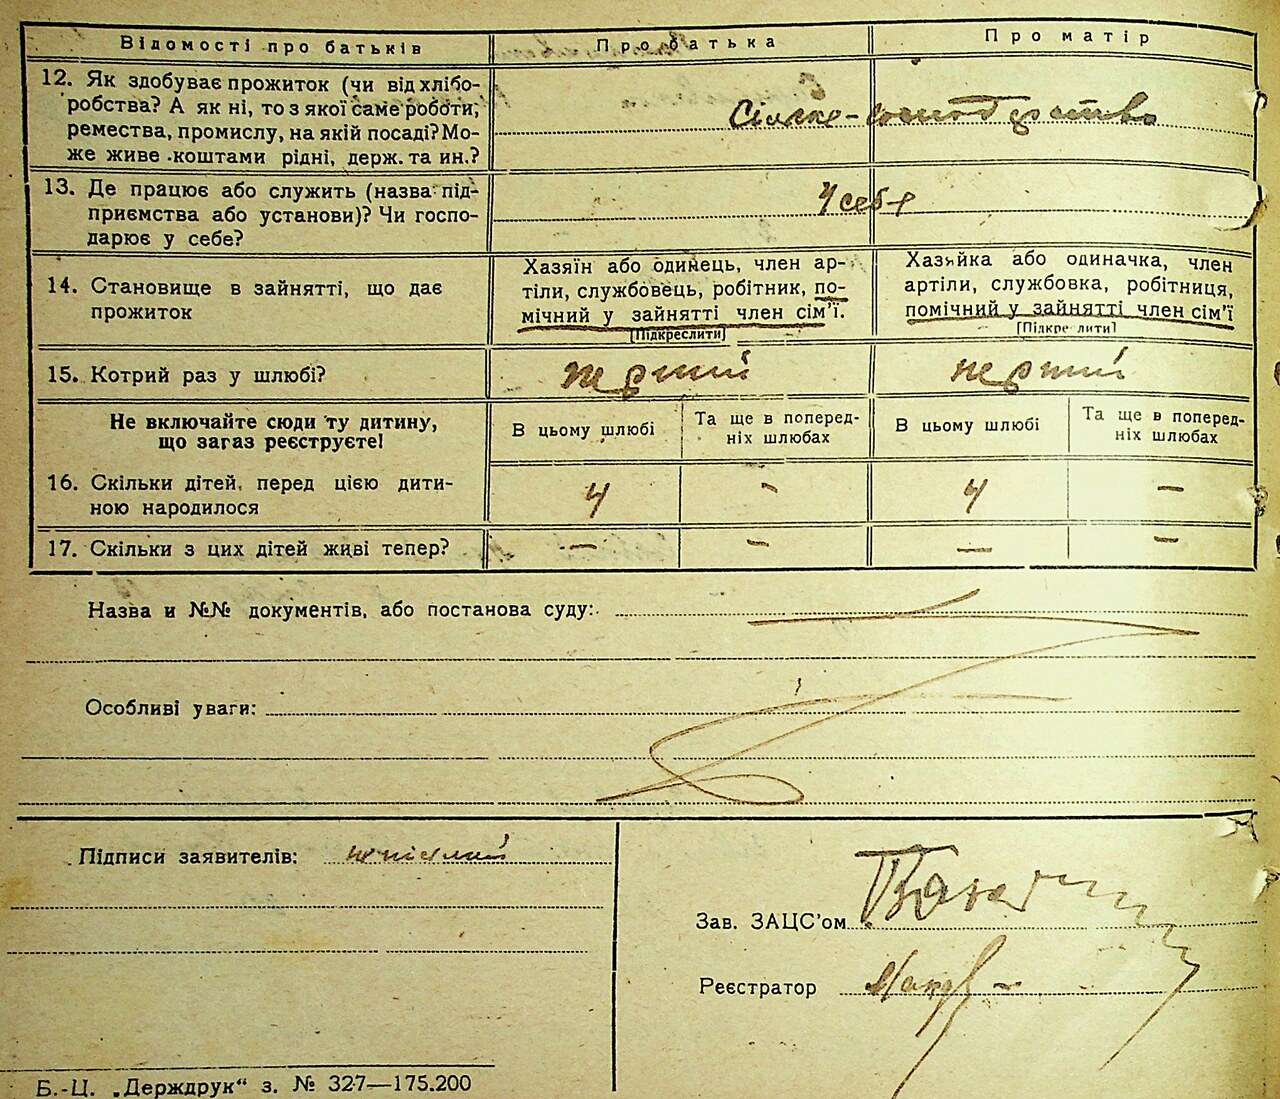 Відомості про батьків
Про батька
Про матір
12. Як здобуває прожиток (чи від хлібо-
робства? А як ні, то з якої саме роботи,
ремества, промислу, на якій посаді? Мо-
же живе коштами рідні, держ. та ин.?
Сільке-господарство
13. Де працює або служить (назва під-
приємства або установи)? Чи госпо-
дарює у себе?
У себе
14. Становище в зайнятті, що дає
прожиток
Хазяїн або одинець, член ар-
тілі, службовець, робітник, по-
мічний у зайнятті член сім'ї.
[Підкреслити]
Хазяйка або одиначка, член
артіли, службовка, робітниця,
помічний у зайнятті член сім'ї
[Підкреслити]
15. Котрий раз у шлюбі?
перший
перший
Не включайте сюди ту дитину,
що загаз реєструєте!
В цьому шлюбі
Та ще в поперед-
ніх шлюбах
В цьому шлюбі
Та ще в поперед-
ніх шлюбах
16. Скільки дітей, перед цією дити-
ною народилося
4
-
4
-
17. Скільки з цих дітей живі тепер?
-
-
-
-
Назва и №№ документів, або постанова суду:
Особливі уваги:
Підписи заявителів: неписьмений
Зав. ЗАЦС'ом
Реєстратор
Б.-Ц. „Держдрук“ з. № 327—175.200